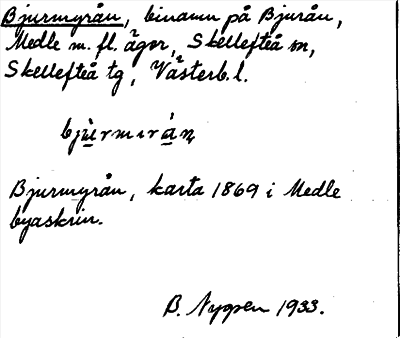 Bjurmyrån, binamn på Bjurån,
Medle m. fl. ägor, Skellefteå sn,
Skellefteå tg, Västerb. l.
bjùrmırán
Bjurmyrån, karta 1869 i Medle
byaskrin.
B. Nygren 1933.